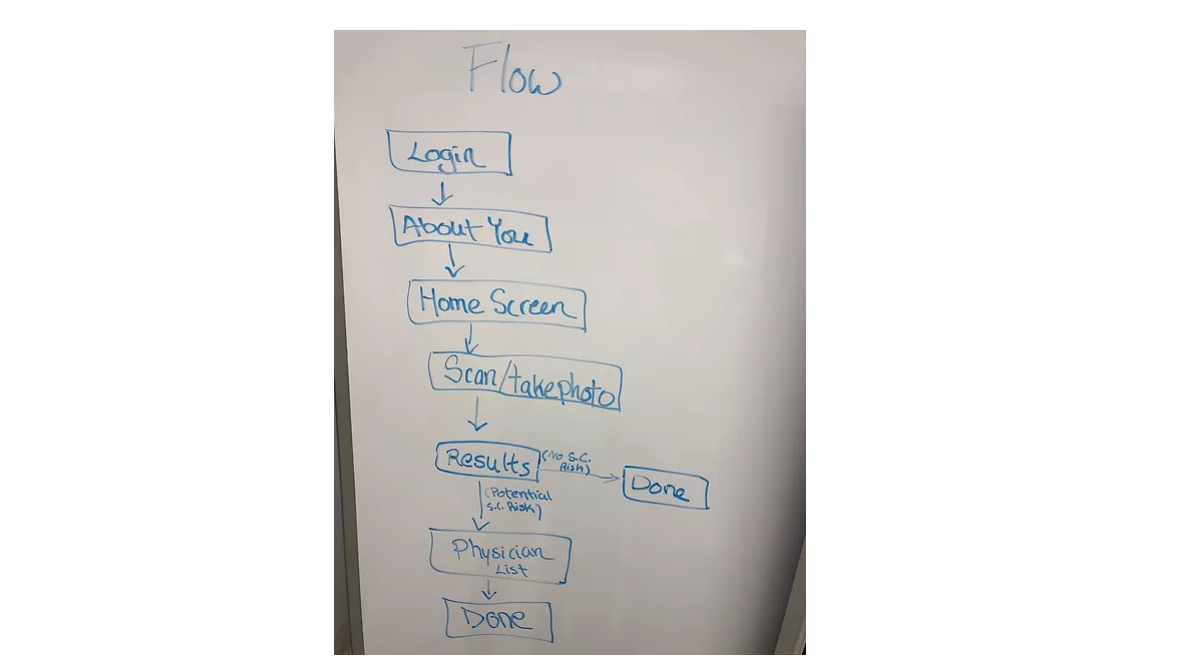 Flow
Login
About You
Home Screen
Scan/take photo
Results
(No S.C.
Risk)
Done
(Potential
S.C. Risk)
Physician
List
Done